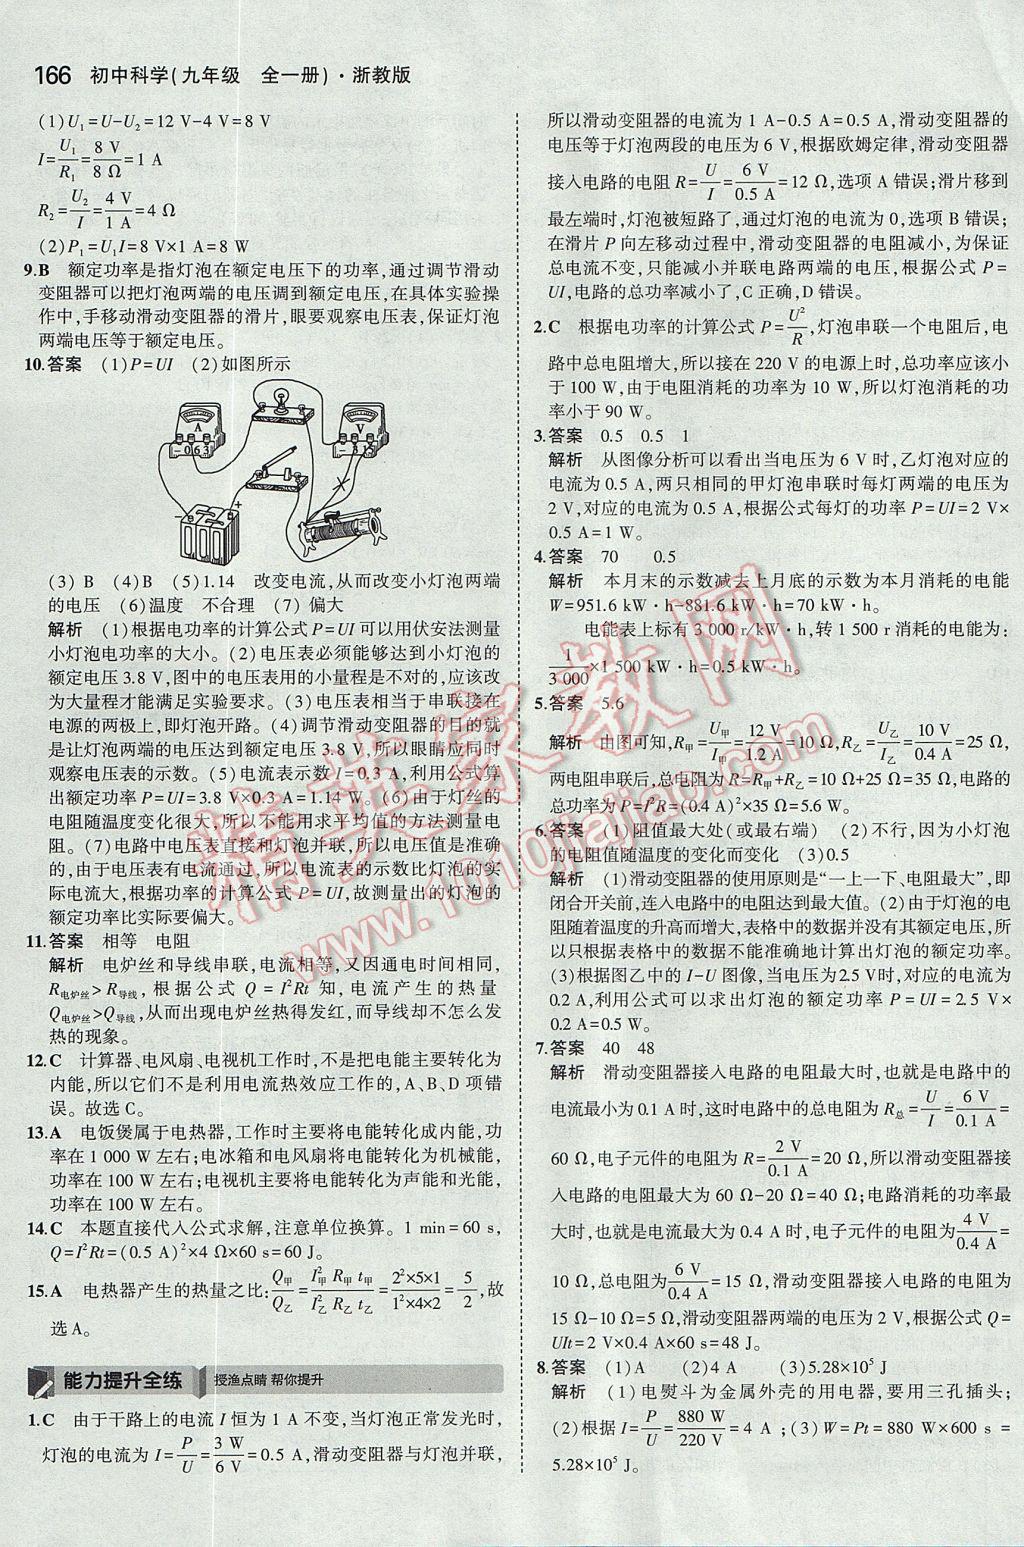 166 初中科学(九年级 全一册)·浙教版
(1)U₁=U-U₂=12 V-4 V=8 V
I=U₁/R₁=8 V/8 Ω=1 A
R₂=U₂/I=4 V/1 A=4 Ω
(2)P₁=U₁I=8 V×1 A=8 W
9.B 额定功率是指灯泡在额定电压下的功率,通过调节滑动
变阻器可以把灯泡两端的电压调到额定电压,在具体实验操
作中,手移动滑动变阻器的滑片,眼要观察电压表,保证灯泡
两端电压等于额定电压。
10.答案 (1)P=UI (2)如图所示
A
V
- 0.6 3
- 3 15
+
(3) B (4)B (5)1.14 改变电流,从而改变小灯泡两端
的电压 (6)温度 不合理 (7) 偏大
解析 (1)根据电功率的计算公式P=UI可以用伏安法测量
小灯泡电功率的大小。(2)电压表必须能够达到小灯泡的
额定电压3.8 V,图中的电压表用的小量程是不对的,应该改
为大量程才能满足实验要求。(3)电压表相当于串联接在
电源的两极上,即灯泡开路。(4)调节滑动变阻器的目的就
是让灯泡两端的电压达到额定电压3.8 V,所以眼睛应同时
观察电压表的示数。(5)电流表示数I=0.3 A,利用公式算
出额定功率P=UI=3.8 V×0.3 A=1.14 W。(6)由于灯丝的
电阻随温度变化很大,所以不能用求平均值的方法测量电
阻。(7)电路中电压表直接和灯泡并联,所以电压值是准确
的,由于电压表有电流通过,所以电流表的示数比灯泡的实
际电流大,根据功率的计算公式P=UI,故测量出的灯泡的
额定功率比实际要偏大。
11.答案 相等 电阻
解析 电炉丝和导线串联,电流相等,又因通电时间相同,
R电炉丝>R导线,根据公式Q=I²Rt知,电流产生的热量
Q电炉丝>Q导线,从而出现电炉丝热得发红,而导线却不怎么发
热的现象。
12.C 计算器、电风扇、电视机工作时,不是把电能主要转化为
内能,所以它们不是利用电流热效应工作的,A、B、D项错
误。故选C。
13.A 电饭煲属于电热器,工作时主要将电能转化成内能,功
率在1 000 W左右;电冰箱和电风扇将电能转化为机械能,
功率在100 W左右;电视机主要将电能转化为声能和光能,
功率在100 W左右。
14.C 本题直接代入公式求解,注意单位换算。1 min=60 s,
Q=I²Rt=(0.5 A)²×4 Ω×60 s=60 J。
15.A 电热器产生的热量之比:Q甲/Q乙=I²甲R甲t甲/I²乙R乙t乙=2²×5×1/1²×4×2=5/2,故
选A。
能力提升全练 授渔点睛 帮你提升
1.C 由于干路上的电流I恒为1 A不变,当灯泡正常发光时,
灯泡的电流为I=P/U=3 W/6 V=0.5 A,滑动变阻器与灯泡并联,
所以滑动变阻器的电流为1 A-0.5 A=0.5 A,滑动变阻器的
电压等于灯泡两段的电压为6 V,根据欧姆定律,滑动变阻器
接入电路的电阻R=U/I=6 V/0.5 A=12 Ω,选项A错误;滑片移到
最左端时,灯泡被短路了,通过灯泡的电流为0,选项B错误;
在滑片P向左移动过程中,滑动变阻器的电阻减小,为保证
总电流不变,只能减小并联电路两端的电压,根据公式P=
UI,电路的总功率减小了,C正确,D错误。
2.C 根据电功率的计算公式P=U²/R,灯泡串联一个电阻后,电
路中总电阻增大,所以接在220 V的电源上时,总功率应该小
于100 W,由于电阻消耗的功率为10 W,所以灯泡消耗的功
率小于90 W。
3.答案 0.5 0.5 1
解析 从图像分析可以看出当电压为6 V时,乙灯泡对应的
电流为0.5 A,两只相同的甲灯泡串联时每灯两端的电压为
2 V,对应的电流为0.5 A,根据公式每灯的功率P=UI=2 V×
0.5 A=1 W。
4.答案 70 0.5
解析 本月末的示数减去上月底的示数为本月消耗的电能
W=951.6 kW·h-881.6 kW·h=70 kW·h。
电能表上标有3 000 r/kW·h,转1 500 r消耗的电能为:
1/3 000×1 500 kW·h=0.5 kW·h。
5.答案 5.6
解析 由图可知,R甲=U甲/I甲=12 V/1.2 A=10 Ω,R乙=U乙/I乙=10 V/0.4 A=25 Ω,
两电阻串联后,总电阻为R=R甲+R乙=10 Ω+25 Ω=35 Ω,电路的
总功率为P=I²R=(0.4 A)²×35 Ω=5.6 W。
6.答案 (1)阻值最大处(或最右端) (2)不行,因为小灯泡
的电阻值随温度的变化而变化 (3)0.5
解析 (1)滑动变阻器的使用原则是“一上一下、电阻最大”,即
闭合开关前,连入电路中的电阻达到最大值。(2)由于灯泡的电
阻随着温度的升高而增大,表格中的数据并没有其额定电压,所
以只根据表格中的数据不能准确地计算出灯泡的额定功率。
(3)根据图乙中的I-U图像,当电压为2.5 V时,对应的电流为
0.2 A,利用公式可以求出灯泡的额定功率P=UI=2.5 V×
0.2 A=0.5 W。
7.答案 40 48
解析 滑动变阻器接入电路的电阻最大时,也就是电路中的
电流最小为0.1 A时,这时电路中的总电阻为R总=U/I=6 V/0.1 A=
60 Ω,电子元件的电阻为R=2 V/0.1 A=20 Ω,所以滑动变阻器接
入电路的电阻最大为60 Ω-20 Ω=40 Ω;电路消耗的功率最
大时,也就是电流最大为0.4 A时,电子元件的电阻为4 V/0.4 A=
10 Ω,总电阻为6 V/0.4 A=15 Ω,滑动变阻器接入电路的电阻为
15 Ω-10 Ω=5 Ω,滑动变阻器两端的电压为2 V,根据公式Q=
UIt=2 V×0.4 A×60 s=48 J。
8.答案 (1)A (2)4 (3)5.28×10⁵ J
解析 (1)电熨斗为金属外壳的用电器,要用三孔插头;
(2)根据I=P/U=880 W/220 V=4 A;(3)W=Pt=880 W×600 s=
5.28×10⁵ J。
精英家教网
www.1010jiajiao.com